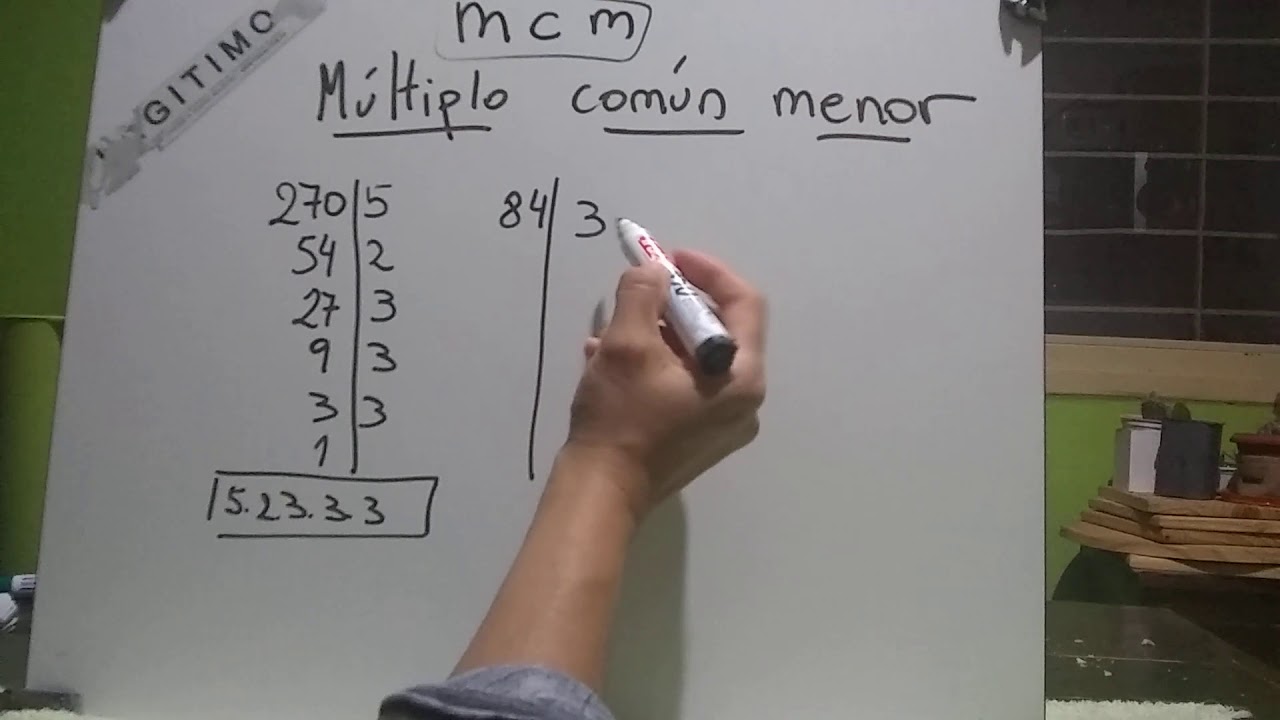 mcm
GITIMO
Múltiplo común menor
270 | 5
54 | 2
27 | 3
9 | 3
3 | 3
1 |
5.23.3.3
84 | 3